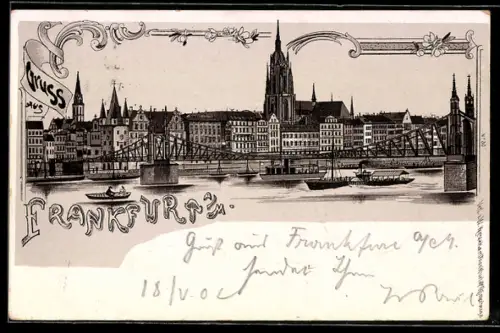 Gruss
aus
FRANKFURT a/M.
Gruß aus Frankfurt a/M.
sendet Ihnen
18/V 02